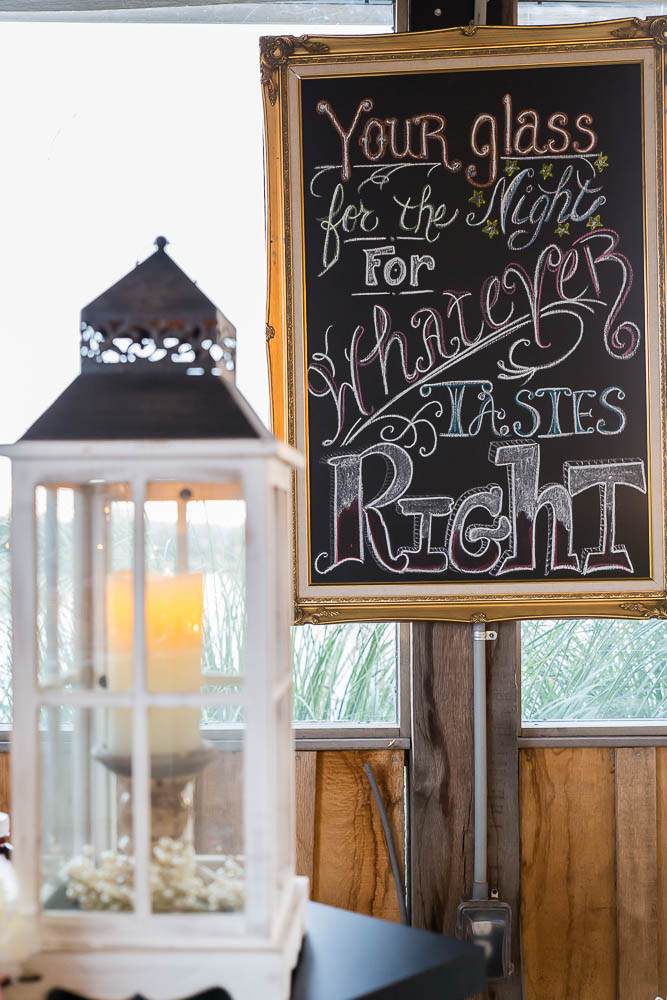 Your glass
for the Night
For
Whatever
Tastes
Right